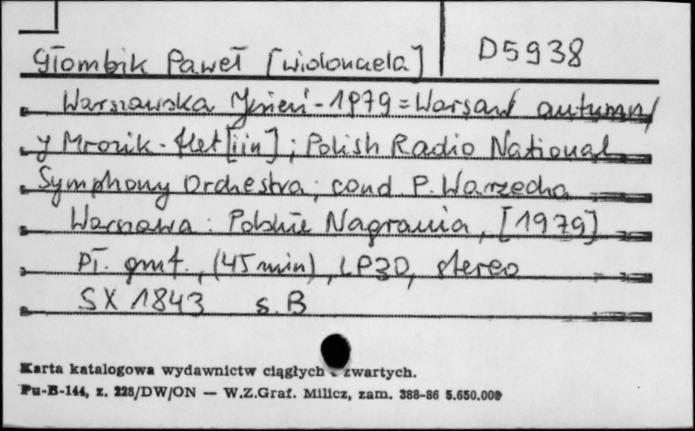 Głombik Paweł [wiolonczela]
D5938
Warszawska Jesień - 1979 = Warsaw autumn /
J Mrozik - flet [iin]; Polish Radio National
Symphony Orchestra; cond P. Warzecha
Warszawa: Polskie Nagrania, [1979]
Pł. gmf., (45 min), LP30, stereo
SX 1843 s. B
Karta katalogowa wydawnictw ciągłych i zwartych.
Pu-B-144, z. 228/DW/ON — W.Z.Graf. Milicz, zam. 388-86 5.650.000